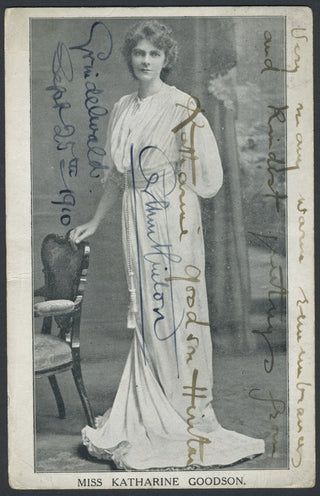 Very many warm remembrances
and kindest greetings from
Katharine Goodson Hinton
Arthur Hinton
Grindelwald.
Sept 25th 1910
MISS KATHARINE GOODSON.